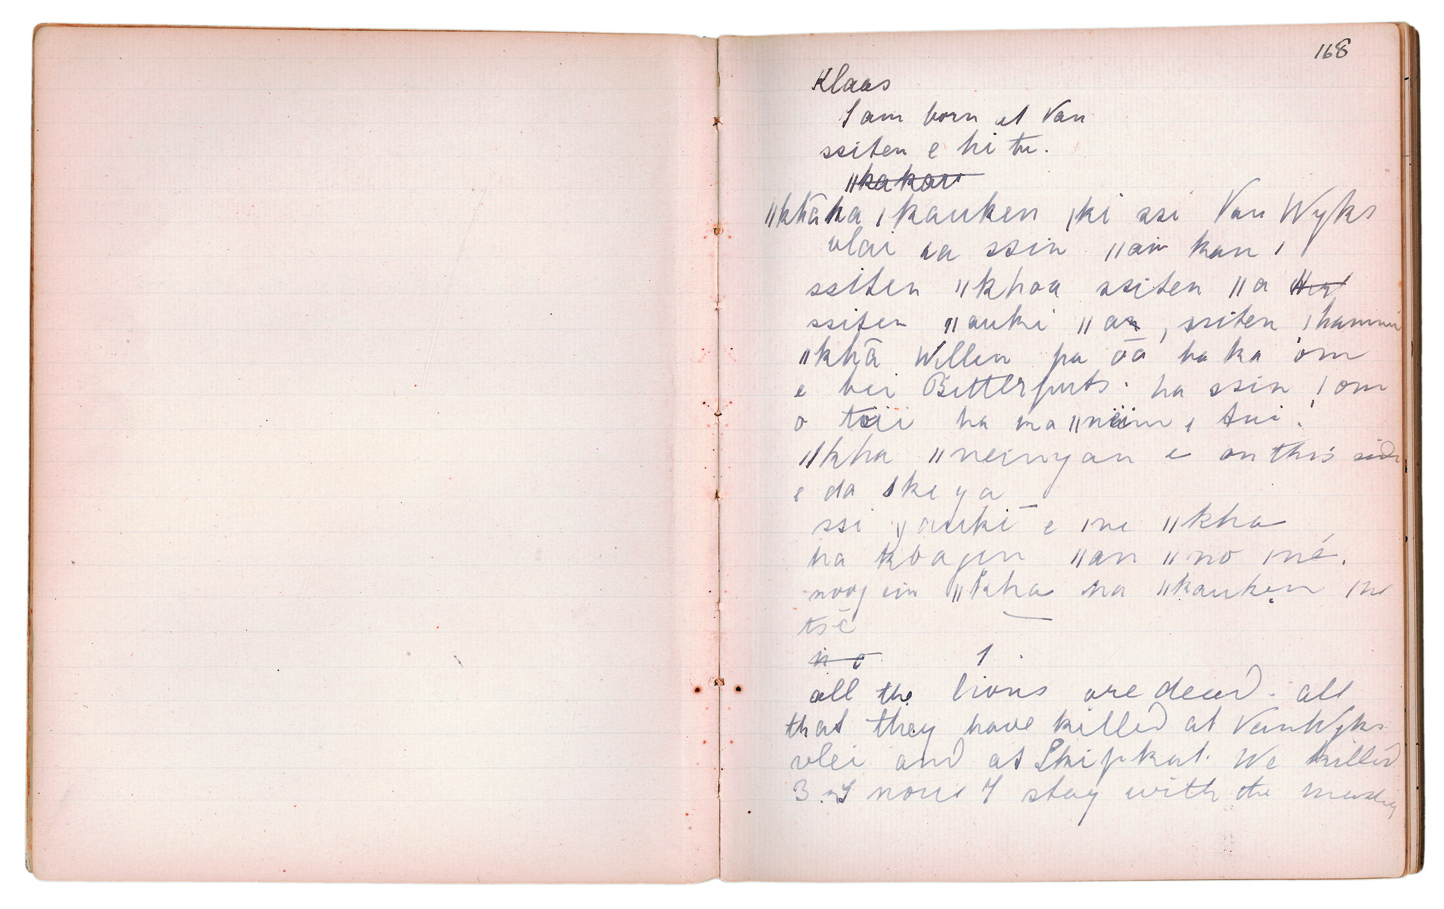 168
Klaas
I am born at Van
ssiten e hi tu.
ǁkakau
ǁkhāka ǀkauken ǀki ssi Van Wyks
vlei ha ssin ǁan kan ǀ
ssiten ǁkhoa ssiten ǁa
ssiten ǁauki ǁa, ssiten ǀhammi
ǁkhā Willem pa ōā ha ka om
e hei Bitterputs. ha ssin ǃom
o ha ma ǁneim
ǁkha ǁneinyan e on this side
e da ki ya
ssi yauki e ǀne ǁkha
ha koagen ǁan ǁno ǀné.
ǁkha ha ǁkauken ǀne
tsē
all the lions are dead. all
that they have killed at Van Wyks
vlei and at Skipkat. We killed
3 now I stay with the